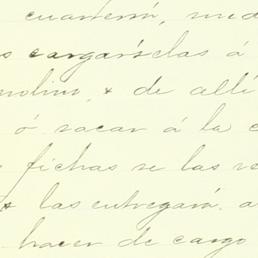 cuarterón, med
s cargarselas á
molino, & de allí
ó sacar á la c
fichas se las ve
las entregará. a
hacer de cargo